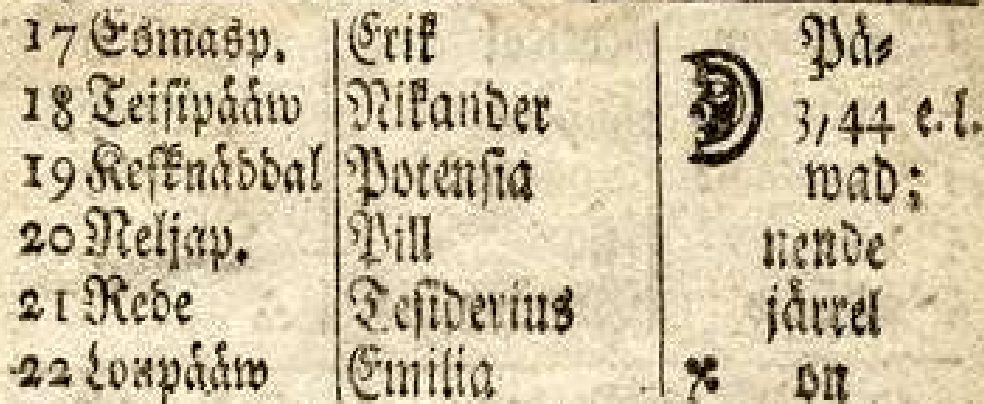 17 Esmasp. Erik Pä-
18 Teisipääw Nikander 3,44 e. l.
19 Kesknäddal Potensia wad;
20 Neljap. Pill nende
21 Rede Tesiderius järrel
22 Loupääw Emilia on